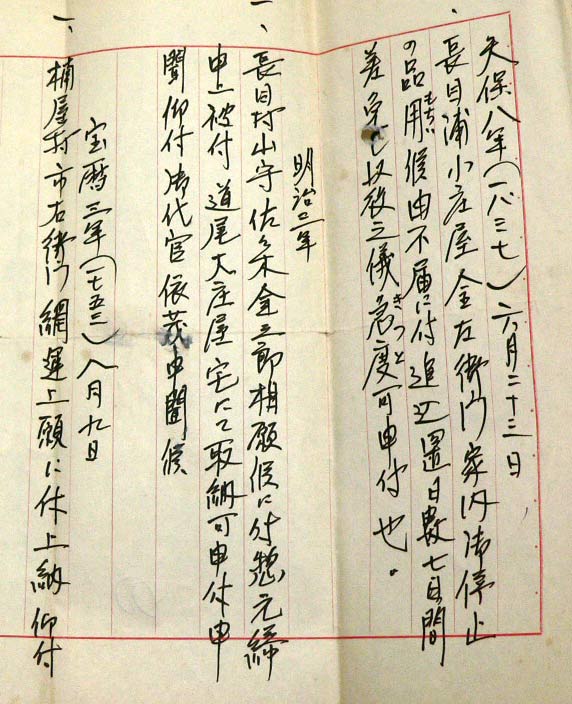 天保八年（一八三七）六月二十三日
長目浦小庄屋金左衛門家内御停止
の品用候由不届に付追込置日数七日間
差免し以後之儀急度可申付也。
もちい
きつと
明治二年
一、長目村山守佐々木金三郎相願候に付惣元締
申上被付道尾大庄屋宅にて取納可申付申
聞仰付御代官依茂申聞候
宝暦三年（一七五三）八月九日
一、楠屋村市右衛門網運上願に付上納仰付